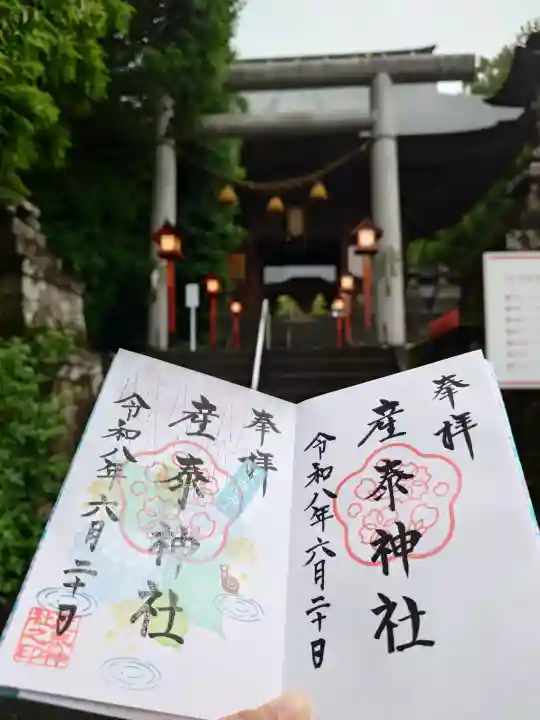 奉拝
産泰神社
令和八年六月二十日
奉拝
産泰神社
令和八年六月二十日